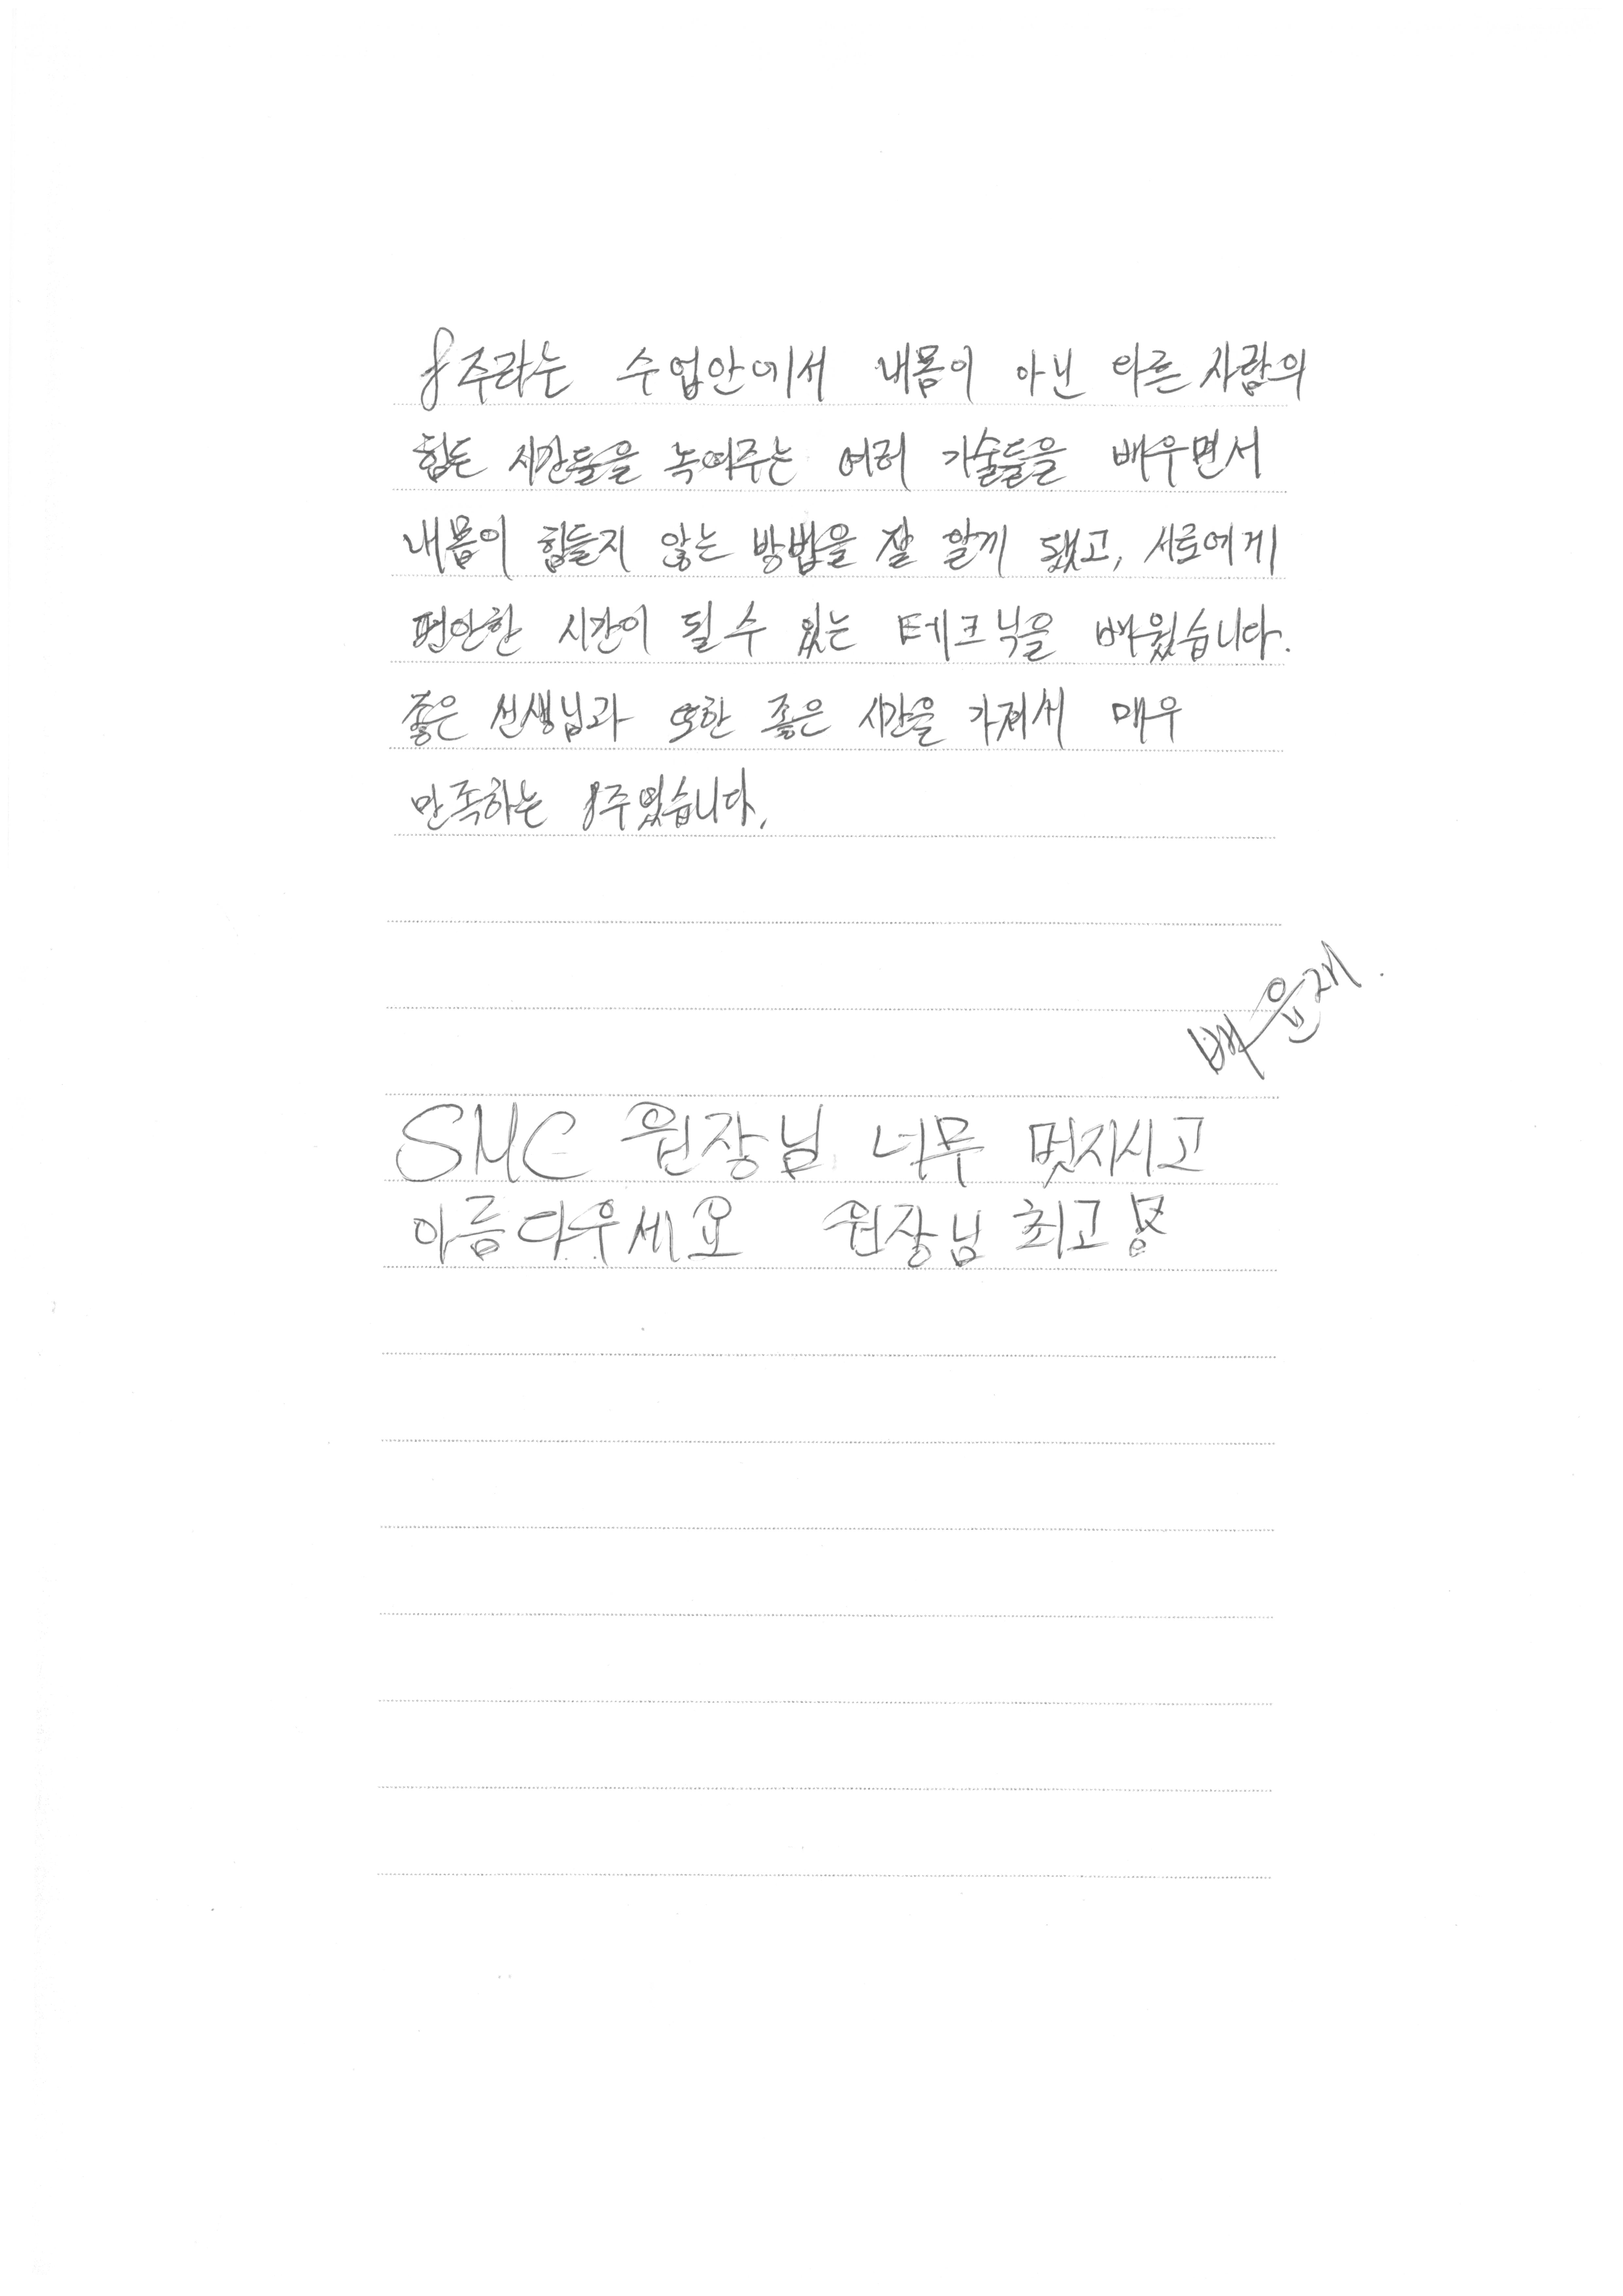 8주라는 수업안에서 내몸이 아닌 다른 사람의
힘든 시간들을 녹여주는 여러 기술들을 배우면서
내몸이 힘들지 않는 방법을 잘 알게 됐고, 서로에게
편안한 시간이 될 수 있는 테크닉을 배웠습니다.
좋은 선생님과 또한 좋은 시간을 가져서 매우
만족하는 8주였습니다.
배윤재.
SMC 원장님 너무 멋지시고
아름다우세요 원장님 최고